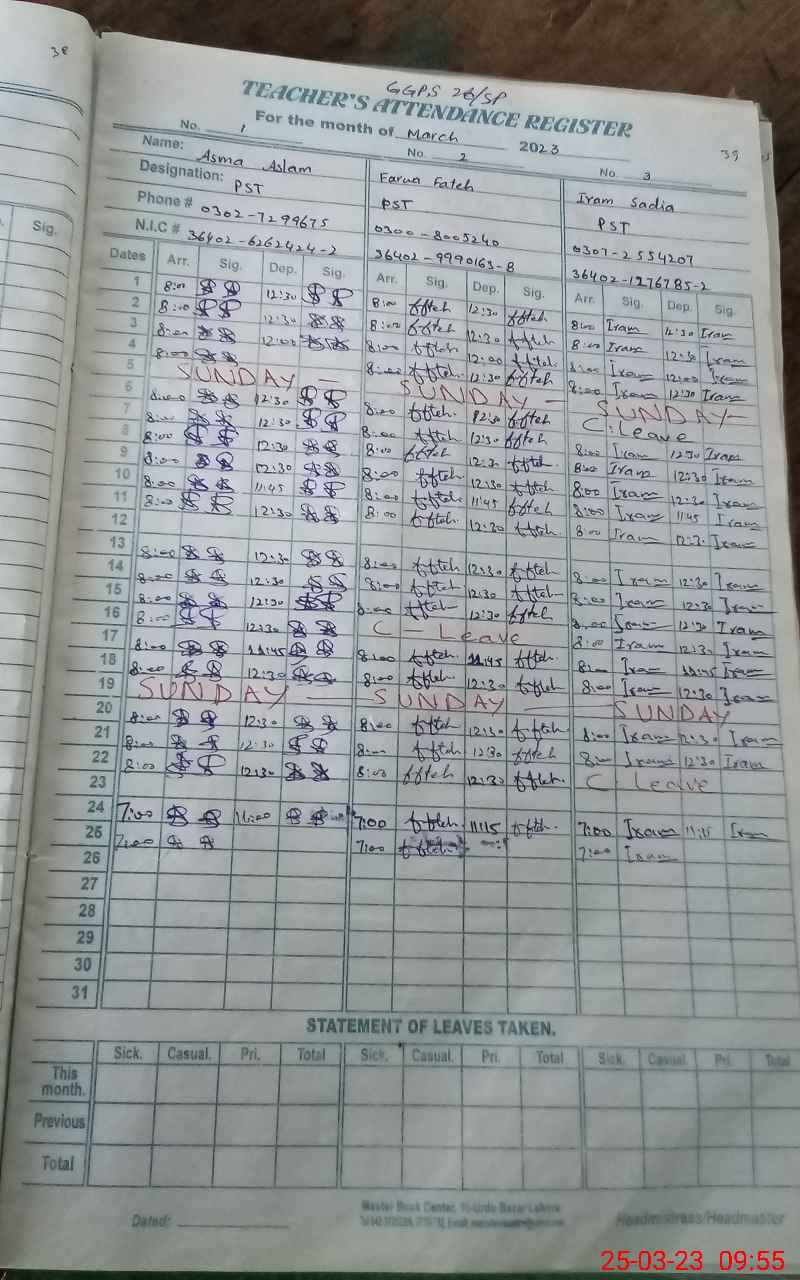 38
GGPS 26/SP
TEACHER'S ATTENDANCE REGISTER
For the month of March 2023
39
No. 1 No. 2 No. 3
Name: Asma Aslam Farwa Fateh Iram Sadia
Designation: PST PST PST
Phone # 0302-7299675 0300-8005240 0307-2554207
N.I.C # 36402-6262424-2 36402-9990163-8 36402-1276785-2
Sig.
Dates Arr. Sig. Dep. Sig. Arr. Sig. Dep. Sig. Arr. Sig. Dep. Sig.
1 8:00 12:30 8:00 ffteh 12:30 ffteh 8:00 Iram 12:30 Iram
2 8:00 12:30 8:00 ffteh 12:30 ffteh 8:00 Iram 12:30 Iram
3 8:00 12:00 8:00 ffteh 12:00 ffteh 8:00 Iram 12:00 Iram
4 8:00 8:00 ffteh 12:30 ffteh 8:00 Iram 12:30 Iram
5 SUNDAY — SUNDAY — SUNDAY —
6 8:00 12:30 8:00 ffteh 12:30 ffteh C:Leave
7 8:00 12:30 8:00 ffteh 12:30 ffteh 8:00 Iram 12:30 Iram
8 8:00 12:30 8:00 ffteh 12:30 ffteh 8:00 Iram 12:30 Iram
9 8:00 12:30 8:00 ffteh 12:30 ffteh 8:00 Iram 12:30 Iram
10 8:00 11:45 8:00 ffteh 11:45 ffteh 8:00 Iram 11:45 Iram
11 8:00 12:30 8:00 ffteh 12:30 ffteh 8:00 Iram 12:30 Iram
12
13 8:00 12:30 8:00 ffteh 12:30 ffteh 8:00 Iram 12:30 Iram
14 8:00 12:30 8:00 ffteh 12:30 ffteh 8:00 Iram 12:30 Iram
15 8:00 12:30 8:00 ffteh 12:30 ffteh 8:00 Iram 12:30 Iram
16 8:00 12:30 C - Leave 8:00 Iram 12:30 Iram
17 8:00 11:45 8:00 ffteh 11:45 ffteh 8:00 Iram 11:45 Iram
18 8:00 12:30 8:00 ffteh 12:30 ffteh 8:00 Iram 12:30 Iram
19 SUNDAY SUNDAY — SUNDAY
20 8:00 12:30 8:00 ffteh 12:30 ffteh 8:00 Iram 12:30 Iram
21 8:00 12:30 8:00 ffteh 12:30 ffteh 8:00 Iram 12:30 Iram
22 8:00 12:30 8:00 ffteh 12:30 ffteh C Leave
23
24 7:00 7:00 ffteh 11:15 ffteh 7:00 Iram 11:15 Iram
25 7:00 7:00 ffteh 7:00 Iram
26
27
28
29
30
31
STATEMENT OF LEAVES TAKEN.
Sick. Casual. Pri. Total Sick. Casual. Pri. Total Sick. Casual. Pri. Total
This month.
Previous
Total
Dated:
Master Book Center, Urdu Bazar Lahore
Headmistress/Headmaster
25-03-23 09:55